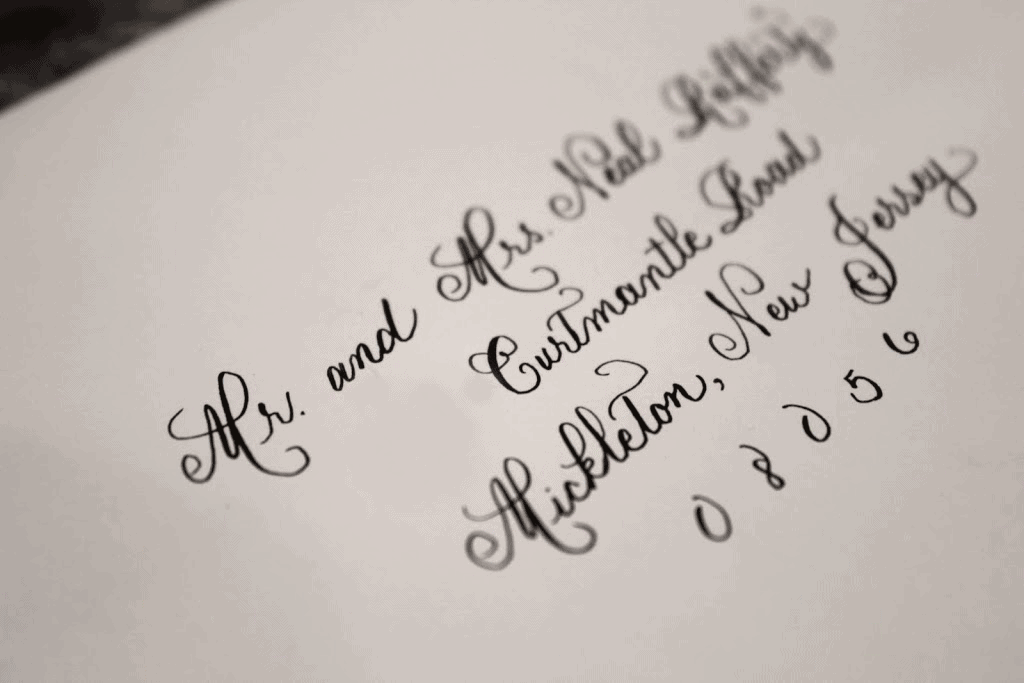 Mr. and Mrs. Neal Rafferty
Curtmantle Road
Mickleton, New Jersey
08056